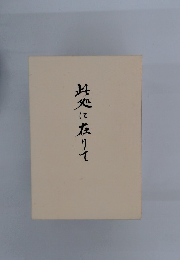 此処に在りて